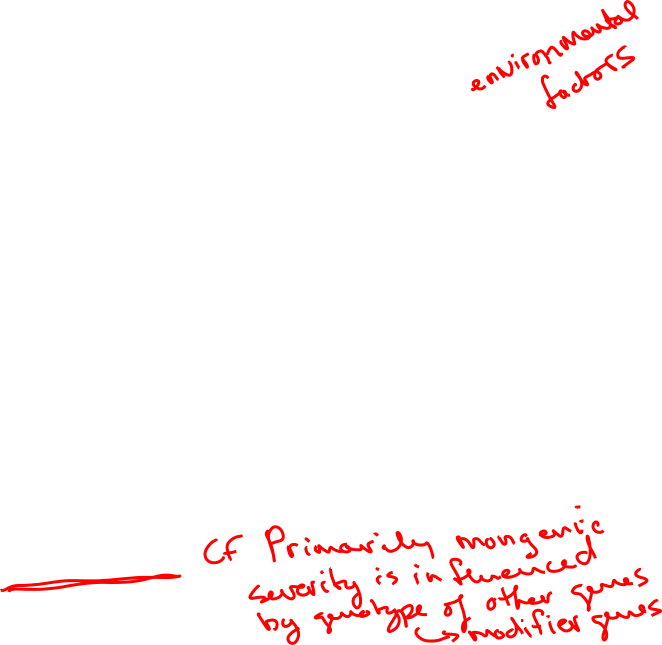 environmental
factors
CF Primarily mongenic
severity is influenced
by genotype of other genes
↳ modifier genes